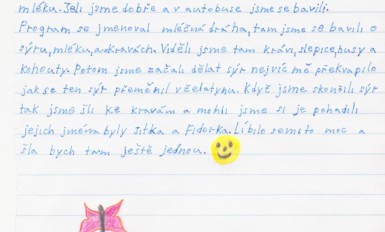 mléku. Jeli jsme dobře a v autobuse jsme se bavili.
Program se jmenoval mléčná dráha, tam jsme se bavili o
sýru, mléku, a o kravách. Viděli jsme tam krávi, slepice, husy a
kohouty. Potom jsme začali dělat sýr nejvíc mě překvapilo
jak se ten sýr přeměnil v želatynu. Když jsme skončili sýr
tak jsme šli ke kravám a mohli jsme si je pohadili
jejich jména byly Jitka a Fidorka. Líbilo se mi to moc a
šla bych tam ještě jednou.